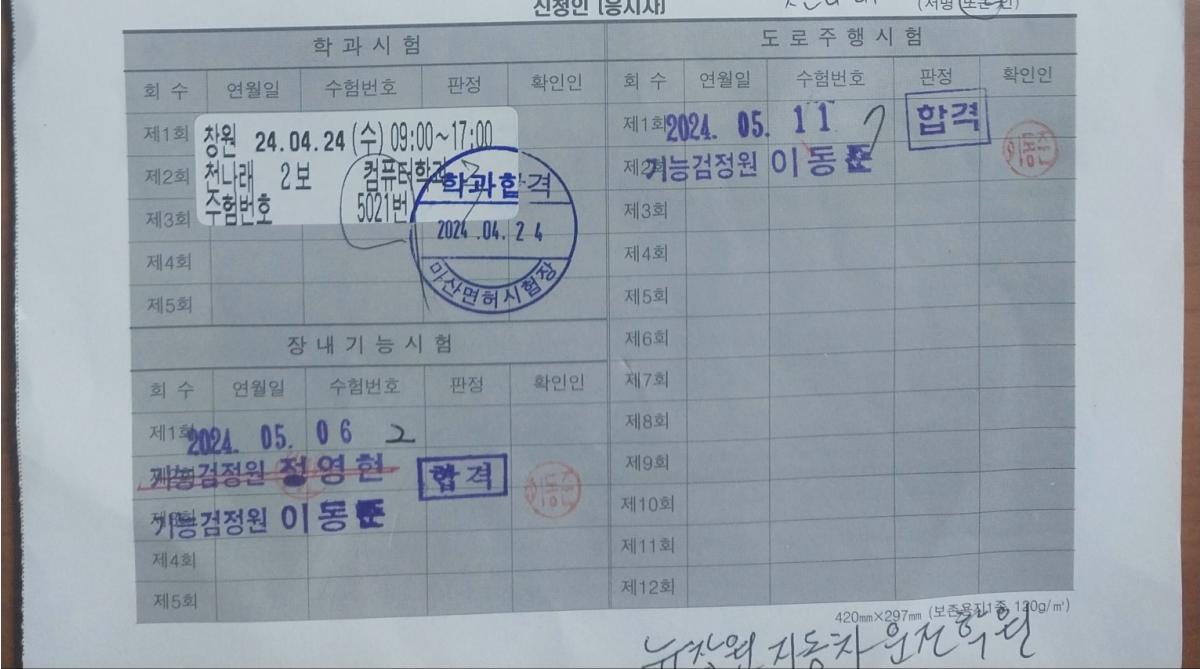 신청인 (응시자)
(서명 또는 인)
학 과 시 험
회 수 연월일 수험번호 판정 확인인
제1회
창원 24.04.24 (수) 09:00~17:00
제2회
천나래 2보 컴퓨터학과
제3회
수험번호 5021번
학과합격
2024.04.24
마산면허시험장
제4회
제5회
장 내 기 능 시 험
회 수 연월일 수험번호 판정 확인인
제1회
2024. 05. 06 2
기능검정원 정영현
합격
이동준
기능검정원 이동준
제4회
제5회
도 로 주 행 시 험
회 수 연월일 수험번호 판정 확인인
제1회
2024. 05. 11 7
합격
제2회
기능검정원 이동준
이동준
제3회
제4회
제5회
제6회
제7회
제8회
제9회
제10회
제11회
제12회
420㎜×297㎜ (보존용지1종 120g/㎡)
뉴창원 자동차 운전학원